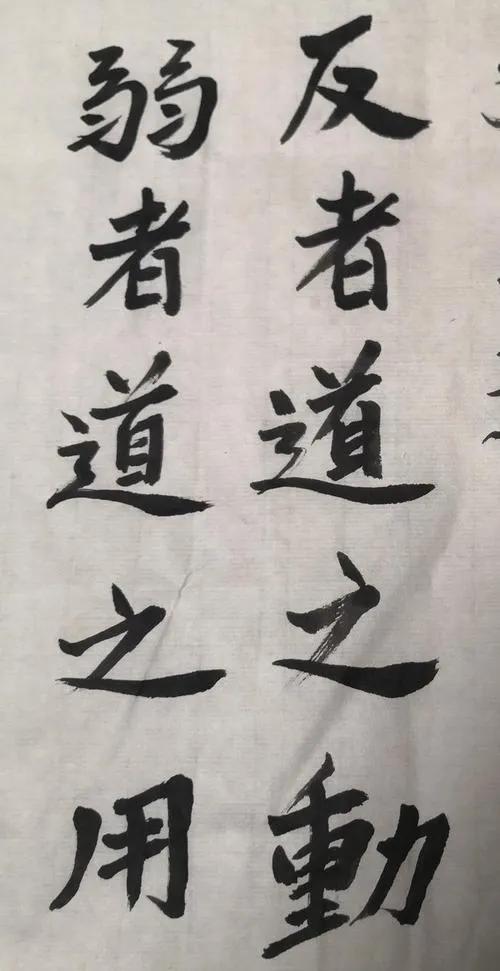 反者道之動
弱者道之用